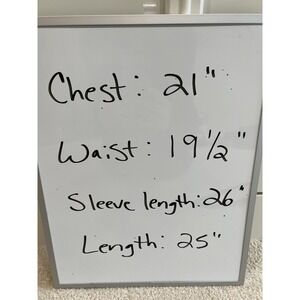 Chest: 21"
Waist: 19 1/2"
Sleeve length: 26"
Length: 25"